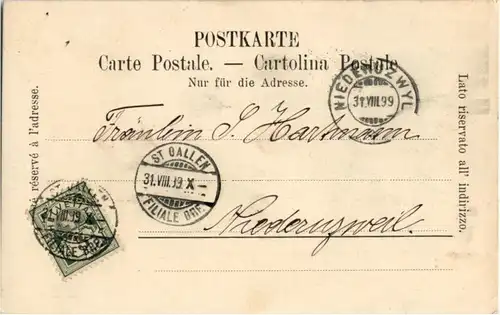 POSTKARTE
Carte Postale. — Cartolina Postale.
Nur für die Adresse.
NIEDERUZWYL
31.VIII.99
Côté réservé à l'adresse.
Lato riservato all' indirizzo.
Fräulein S. Hartmann
ST. GALLEN
31.VIII.99 X—
FILIALE
Niederuzweil.
ST. GALLEN
31.VIII.99 X